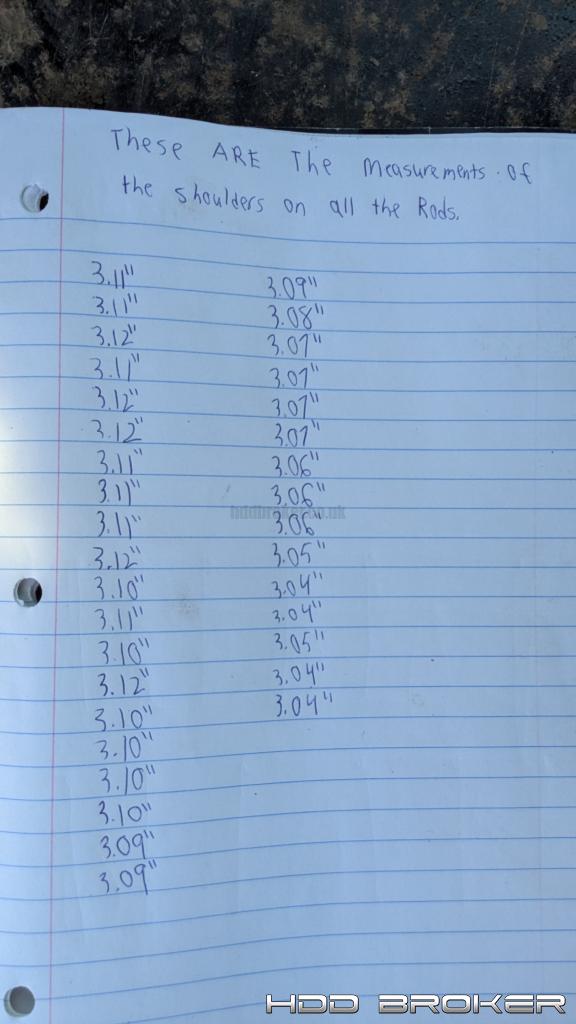 These ARE The Measurements of
the shoulders on all the Rods.
3.11"
3.11"
3.12"
3.11"
3.12"
3.12"
3.11"
3.11"
3.11"
3.12"
3.10"
3.11"
3.10"
3.12"
3.10"
3.10"
3.10"
3.10"
3.09"
3.09"
3.09"
3.08"
3.07"
3.07"
3.07"
3.07"
3.06"
3.06"
3.06"
3.05"
3.04"
3.04"
3.05"
3.04"
3.04"
hddbroker.co.uk
HDD BROKER